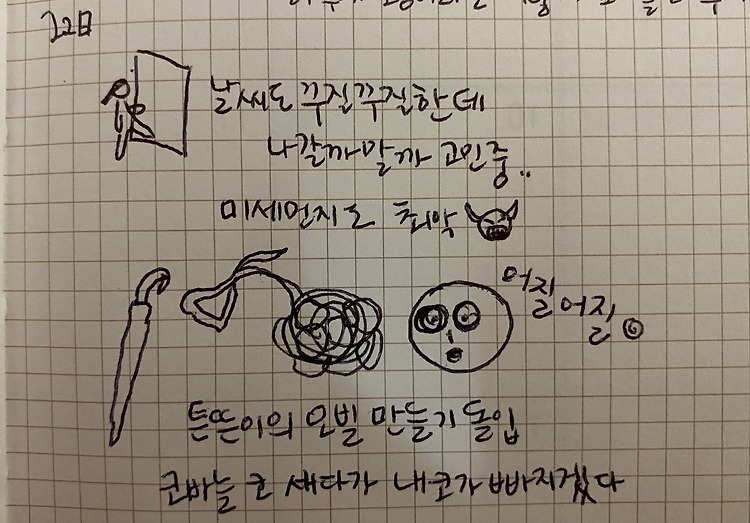 22日
날씨도 꾸질꾸질한데
나갈까말까 고민중..
미세먼지도 최악
어질어질
튼튼이의 모빌 만들기 돌입
코바늘 코 세다가 내코가 빠지겠다